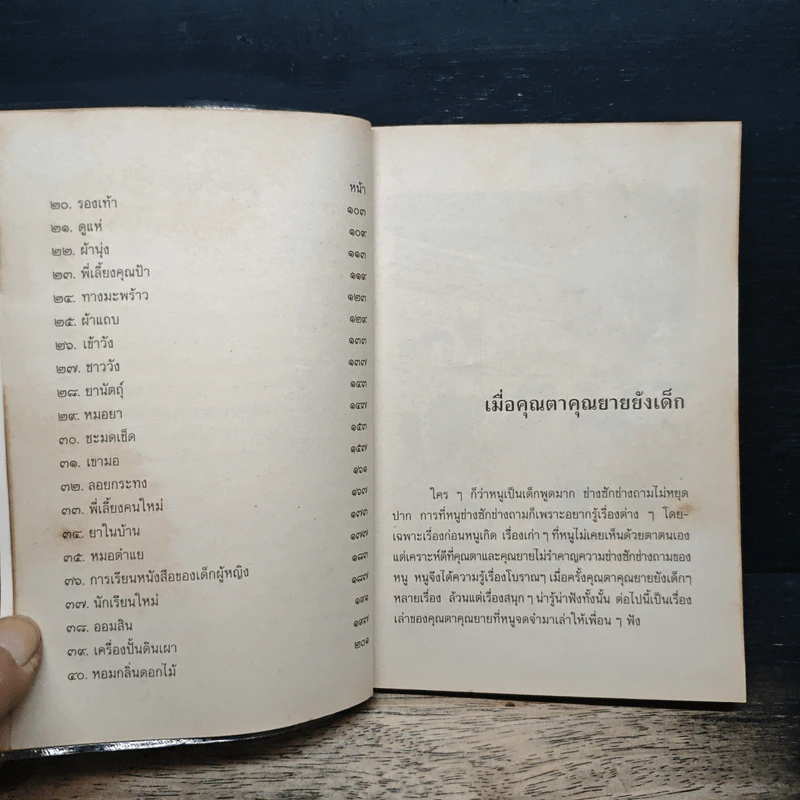 หน้า
๒๐. รองเท้า ๑๐๓
๒๑. ดูแห่ ๑๐๙
๒๒. ผ้านุ่ง ๑๑๓
๒๓. พี่เลี้ยงคุณป้า ๑๑๙
๒๔. ทางมะพร้าว ๑๒๓
๒๕. ผ้าแถบ ๑๒๙
๒๖. เข้าวัง ๑๓๓
๒๗. ชาววัง ๑๓๗
๒๘. ยานัตถุ์ ๑๔๓
๒๙. หมอยา ๑๔๗
๓๐. ชะมดเช็ด ๑๕๓
๓๑. เขามอ ๑๕๗
๓๒. ลอยกระทง ๑๖๑
๓๓. พี่เลี้ยงคนใหม่ ๑๖๗
๓๔. ยาในบ้าน ๑๗๓
๓๕. หมอตำแย ๑๗๗
๓๖. การเรียนหนังสือของเด็กผู้หญิง ๑๘๓
๓๗. นักเรียนใหม่ ๑๘๗
๓๘. ออมสิน ๑๙๑
๓๙. เครื่องปั้นดินเผา ๑๙๗
๔๐. หอมกลิ่นดอกไม้ ๒๐๑
เมื่อคุณตาคุณยายยังเด็ก
ใคร ๆ ก็ว่าหนูเป็นเด็กพูดมาก ช่างซักช่างถามไม่หยุด
ปาก การที่หนูช่างซักช่างถามก็เพราะอยากรู้เรื่องต่าง ๆ โดย-
เฉพาะเรื่องก่อนหนูเกิด เรื่องเก่า ๆ ที่หนูไม่เคยเห็นด้วยตาตนเอง
แต่เคราะห์ดีที่คุณตาและคุณยายไม่รำคาญความช่างซักช่างถามของ
หนู หนูจึงได้ความรู้เรื่องโบราณๆ เมื่อครั้งคุณตาคุณยายยังเด็กๆ
หลายเรื่อง ล้วนแต่เรื่องสนุก ๆ น่ารู้น่าฟังทั้งนั้น ต่อไปนี้เป็นเรื่อง
เล่าของคุณตาคุณยายที่หนูจดจำมาเล่าให้เพื่อน ๆ ฟัง